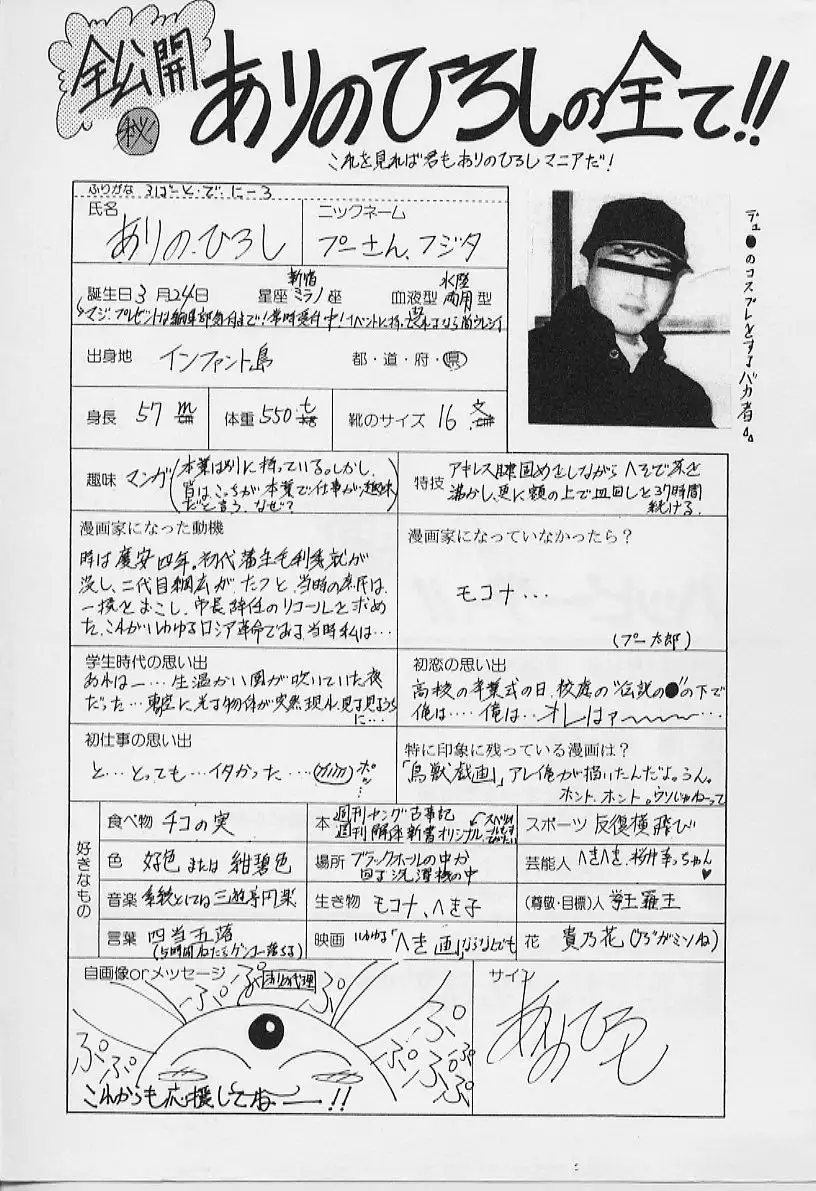 全公開
㊙
ありのひろしの全て!!
これを見れば君もありのひろしマニアだ!
ふりがな ろばーと・で・にーろ
氏名
ありの.ひろし
ニックネーム
プーさん、フジタ
誕生日 3月24日
星座 新宿ミラノ座
血液型 水陸両用型
マジ.プレゼントは編集部気付まで!常時受付中!イベントに持
出身地 インファント島 都・道・府・県
身長 57m
体重 550t
靴のサイズ 16文
のコスプレをするバカ者
趣味 マンガ(本業は別に持っている。しかし、
皆はこっちが本業で仕事が趣味
だと言う、なぜ?
特技 アキレス腱固めをしながらヘソで茶を
沸かし、更に額の上で皿回しを37時間
続ける.
漫画家になった動機
時は慶安四年。初代藩主毛利秀就が
没し、二代目綱広がたつと、当時の庶民は、
一揆をおこし、市長辞任のリコールを求め
た、これがいわゆるロシア革命である、当時私は…
漫画家になっていなかったら?
モコナ…
(プー太郎)
学生時代の思い出
あれは…生温かい風が吹いていた夜
だった…東空に光る物体が突然現れ、見る見るうち
に…
初恋の思い出
高校の卒業式の日、校庭の"伝説の●"の下で
俺は…‥ 俺は…オレはァ〜〜〜…
初仕事の思い出
と…とっても…イタかった…ポッ…
特に印象に残っている漫画は?
「鳥獣戯画」、アレ俺が描いたんだよ。うん。
ホント、ホント。ウソじゃねーって
好きなもの
食べ物 チコの実
本 週刊ヤング古事記
週刊解体新書オリジナル
スポーツ 反復横飛び
色 好色または紺碧色
場所 ブラックホールの中か
回る洗濯機の中
芸能人 へきへき、桜井幸っちゃん♥
音楽 系統としては三遊亭円楽
生き物 モコナ、へき子
(尊敬・目標)人 拳王羅王
言葉 四当五落
(5時間ねたらゲンコー落ちる)
映画 いわゆる「へき画」ならなんでも
花 貴乃花(ワざガミソね)
自画像orメッセージ
ぷぷぷ ぷぷ
ぷぷぷ ぷぷぷぷ
これからも応援してねー!!
サイン
ありのひろし